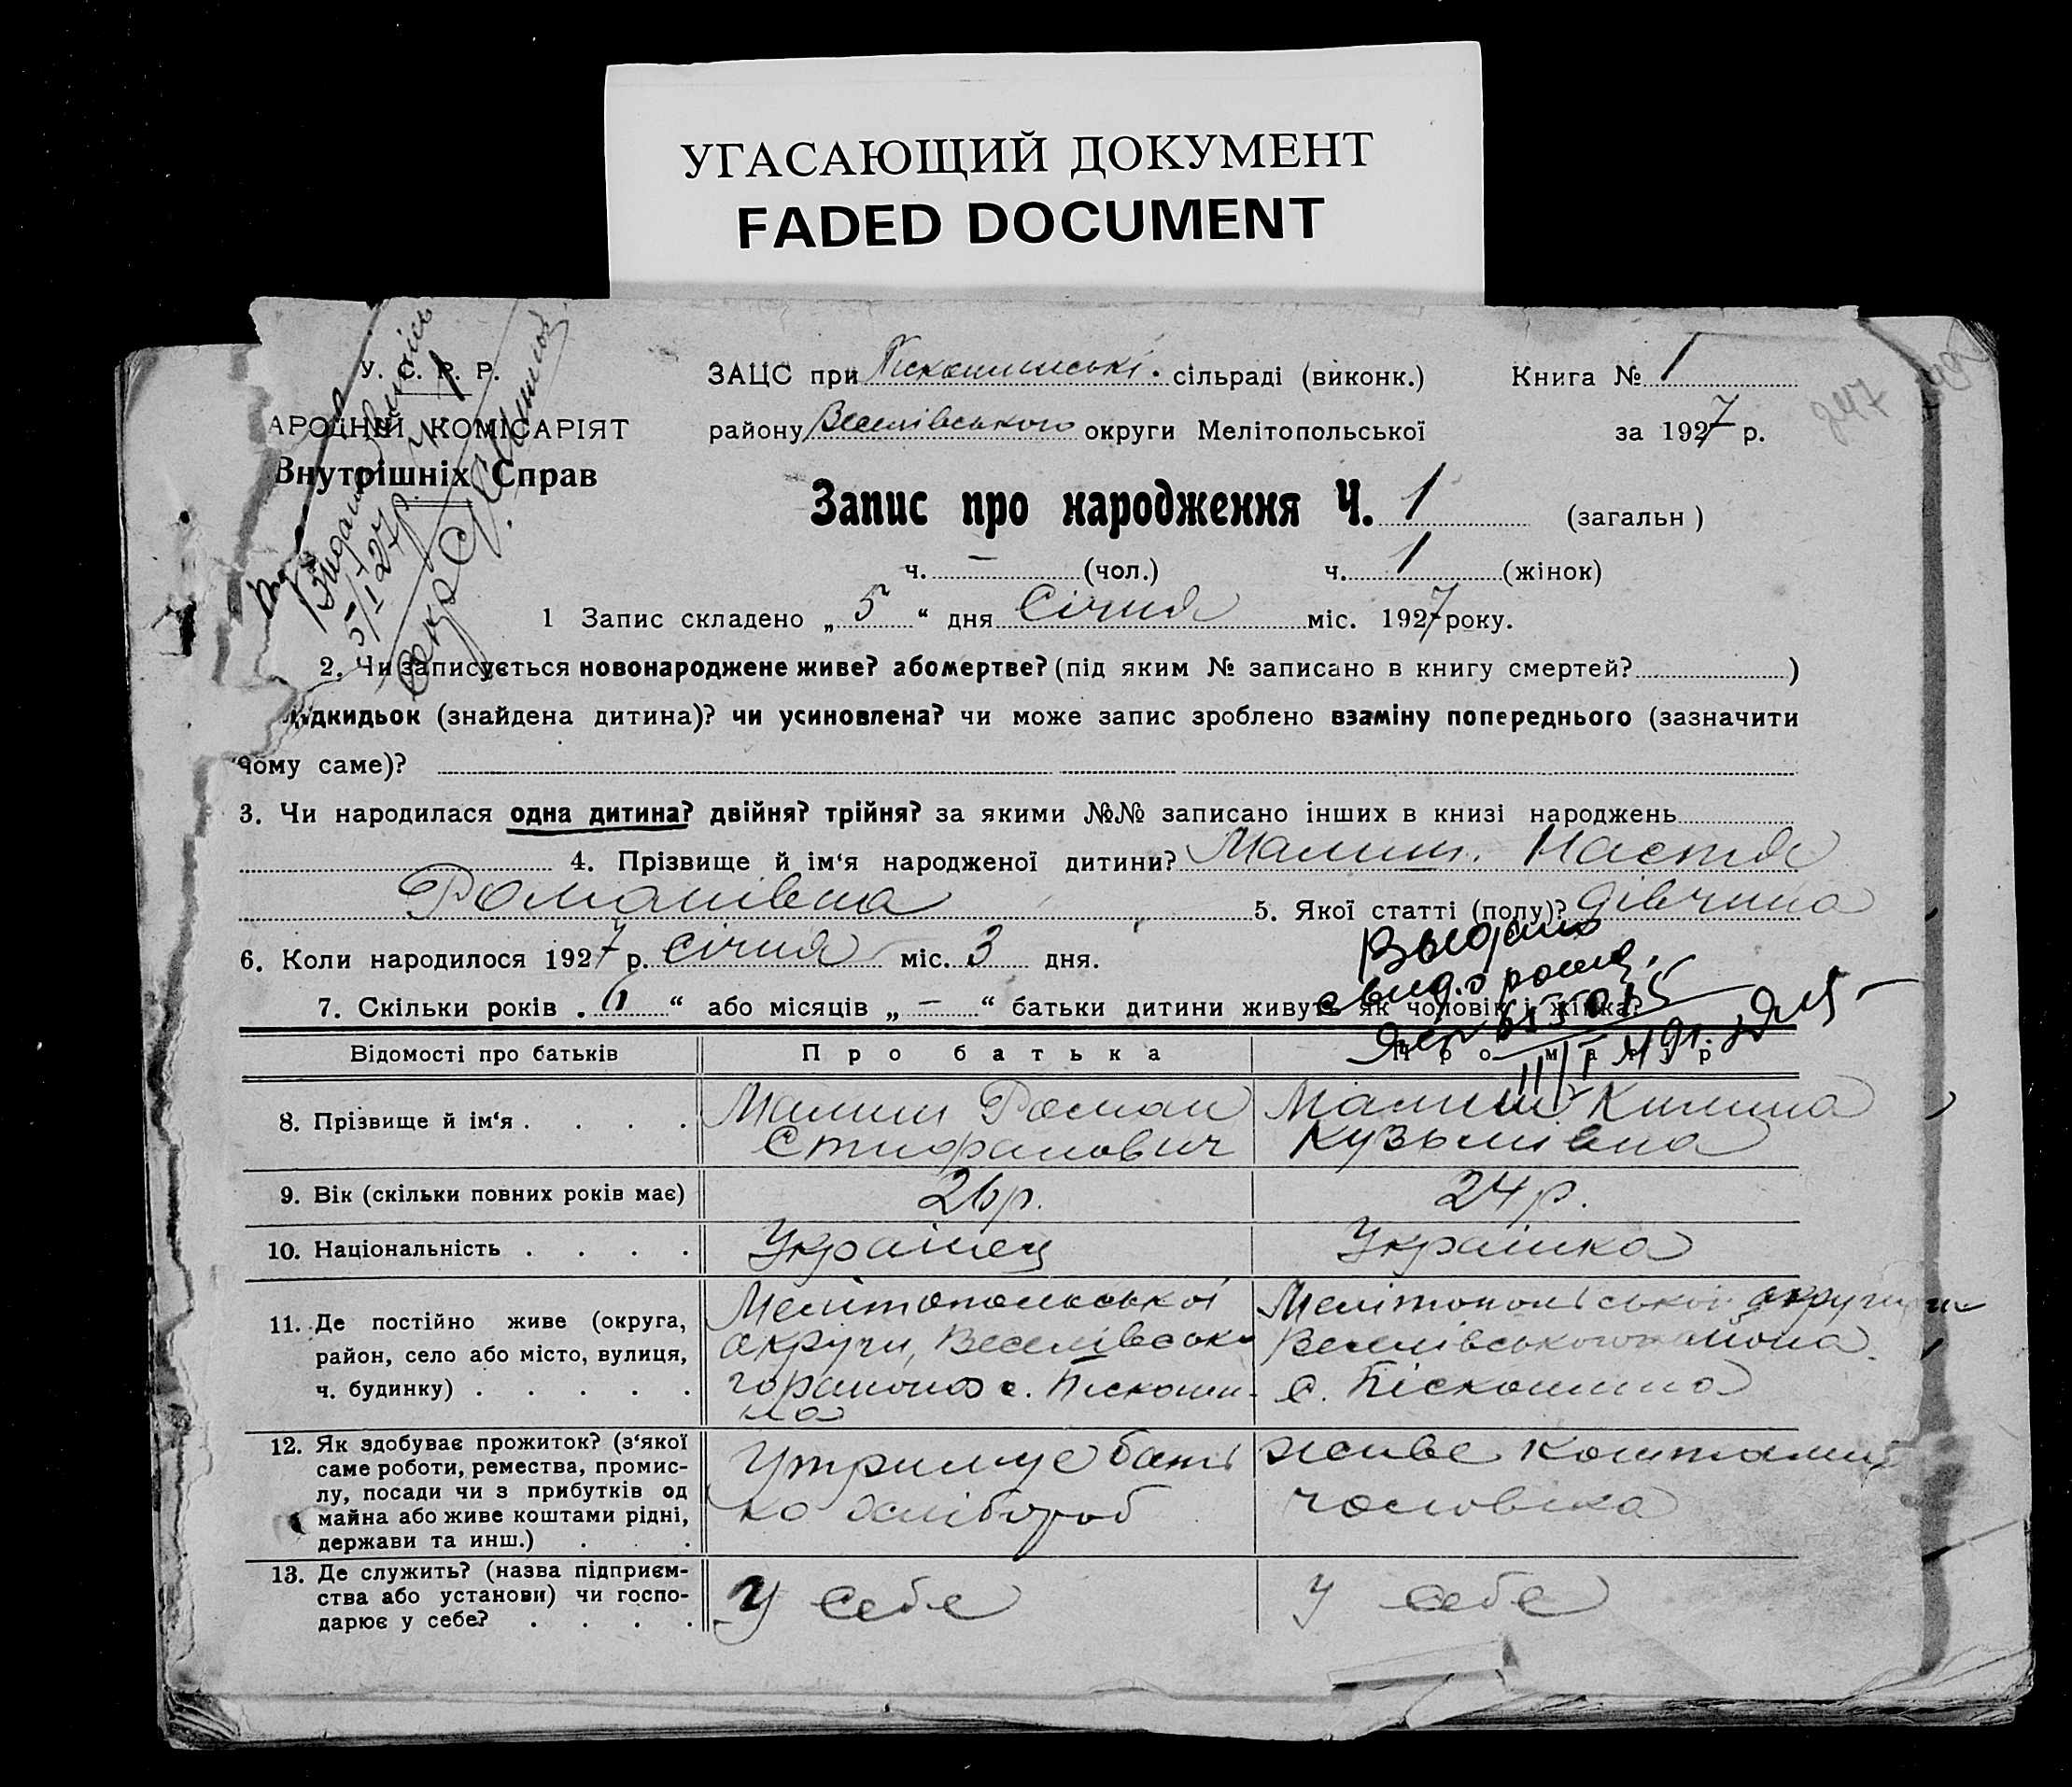 УГАСАЮЩИЙ ДОКУМЕНТ
FADED DOCUMENT
У. С. Р. Р.
АРОДНІЙ КОМІСАРІЯТ
Внутрішніх Справ
Видано
5/I 27 р.
Секр.
ЗАЦС при Піскошинські. сільраді (виконк.) Книга № 1
району Веселівського округи Мелітопольської за 1927 р.
247
Запис про народження Ч. 1 (загальн )
ч. — (чол.) ч. 1 (жінок)
1 Запис складено „ 5 “ дня Січня міс. 1927 року.
2. Чи записується новонароджене живе? абомертве? (під яким № записано в книгу смертей? )
підкидьок (знайдена дитина)? чи усиновлена? чи може запис зроблено взаміну попереднього (зазначити
чому саме)?
3. Чи народилася одна дитина? двійня? трійня? за якими №№ записано інших в книзі народжень
4. Прізвище й ім‘я народженої дитини? Малиш. Настя
Романівна 5. Якої статті (полу)? дівчина
6. Коли народилося 1927 р. Січня міс. 3 дня.
Выдано
свид. о рожд.
7. Скільки років . 6 “ або місяців „ — “ батьки дитини живуть як чоловік і жінка?
Відомості про батьків Про батька Про матір
8. Прізвище й ім‘я . . . . Малиш Роман Малиш Килина
Стифанович Кузьмівна
9. Вік (скільки повних років має) 26 р. 24 р.
10. Національність . . . . Українец Українка
11. Де постійно живе (округа, Мелітопольської Мелітопольської округи
район, село або місто, вулиця, округи, Веселівсько Веселівського района
ч. будинку) . . . . . го района с. Піскоши- с. Піскошино
но
12. Як здобуває прожиток? (з‘якої
саме роботи, ремества, промис- Утримує бать живе коштами
лу, посади чи з прибутків од
майна або живе коштами рідні, ко хлібороб чоловіка
держави та инш.) . . .
13. Де служить? (назва підприєм-
ства або установи) чи госпо- У себе У себе
дарює у себе? . . . .